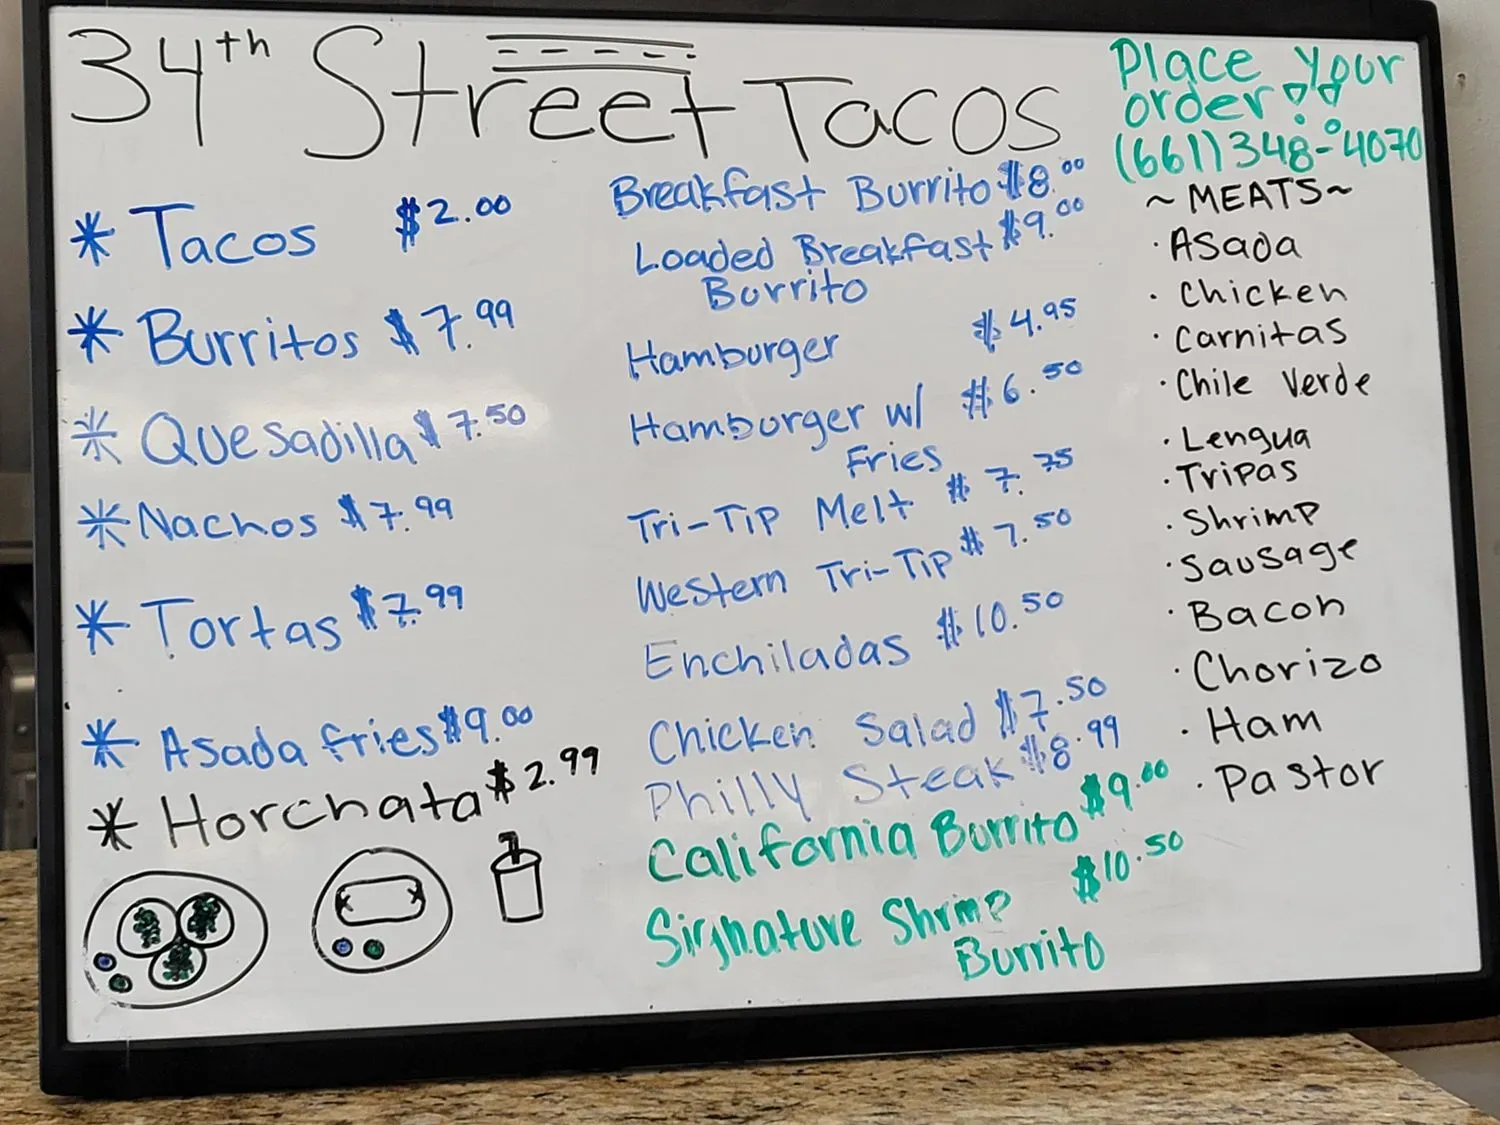 34th Street Tacos
* Tacos $2.00
* Burritos $7.99
* Quesadilla $7.50
* Nachos $7.99
* Tortas $7.99
* Asada fries $9.00
* Horchata $2.99
Breakfast Burrito $8.00
Loaded Breakfast $9.00
Burrito
Hamburger $4.95
Hamburger w/ $6.50
Fries
Tri-Tip Melt $7.75
Western Tri-Tip $7.50
Enchiladas $10.50
Chicken Salad $7.50
Philly Steak $8.99
California Burrito $9.00
Signature Shrimp $10.50
Burrito
Place your
order!!
(661)348-4070
~MEATS~
· Asada
· Chicken
· Carnitas
· Chile Verde
· Lengua
· Tripas
· Shrimp
· Sausage
· Bacon
· Chorizo
· Ham
· Pastor